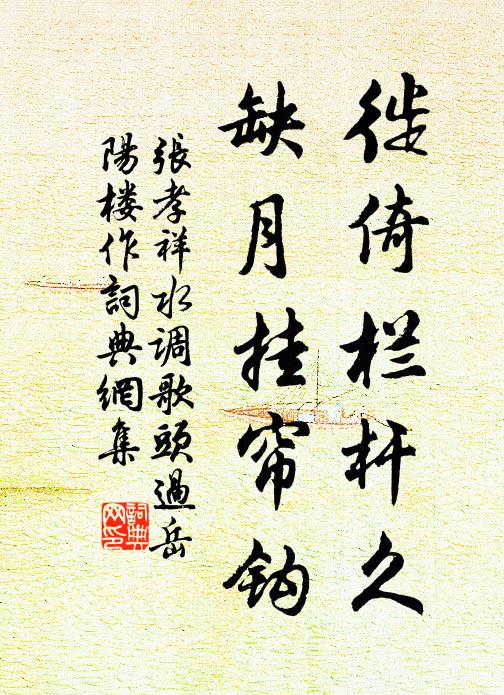 徙倚栏杆久
缺月挂帘钩
張孝祥水调歌頭過岳
陽楼作詞典網集
詞典
网印